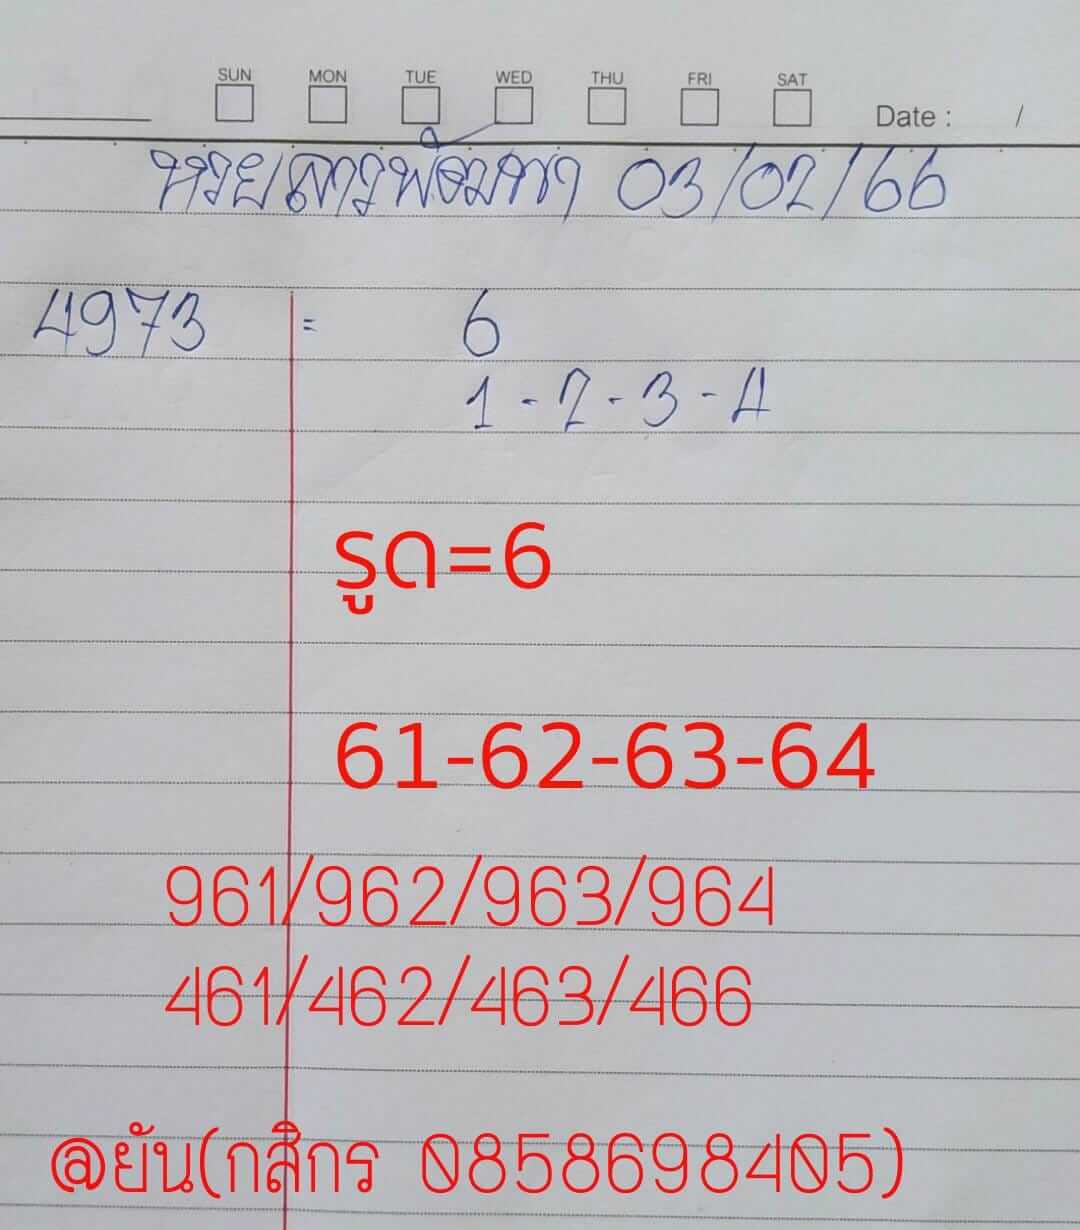 SUN MON TUE WED THU FRI SAT
Date : /
หวยลาวพัฒนา 03/02/66
4973 = 6
1-2-3-4
รูด=6
61-62-63-64
961/962/963/964
461/462/463/466
@ยัน(กสิกร 0858698405)